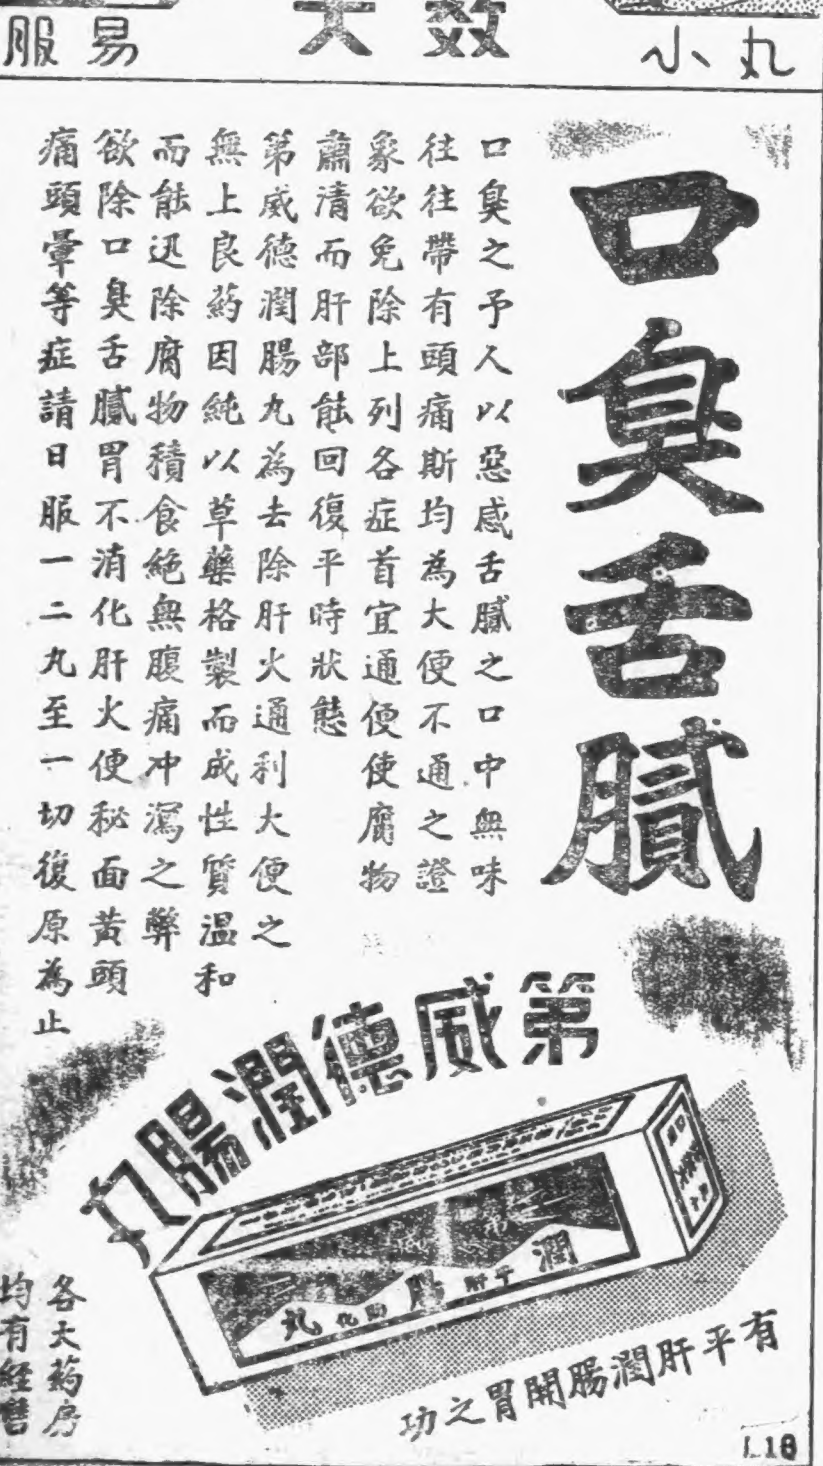 丸小
效大
易服
口臭舌膩
口臭之予人以惡感舌膩之口中無味
往往帶有頭痛斯均為大便不通之證
象欲免除上列各症首宜通便使腐物
肅清而肝部能回復平時狀態
第威德潤腸丸為去除肝火通利大便之
無上良葯因純以草藥格製而成性質溫和
而能迅除腐物積食絶無腹痛冲瀉之弊
欲除口臭舌膩胃不消化肝火便秘面黃頭
痛頭暈等症請日服一二丸至一切復原為止
第威德潤腸丸
潤腸丸
平肝
有平肝潤腸開胃之功
各大葯房
均有經售
L18